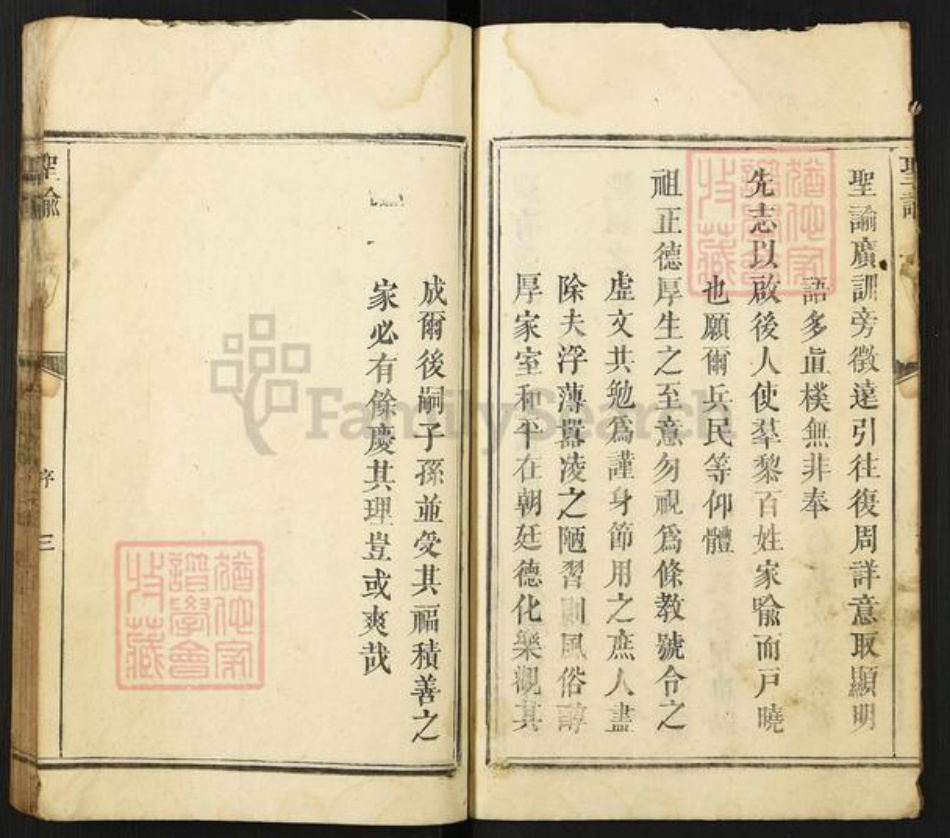 聖諭廣訓旁徵遠引往復周詳意取顯明
語多直樸無非奉
先志以啟後人使羣黎百姓家喻而戶曉
也願爾兵民等仰體
祖正德厚生之至意勿視爲條教號令之
虛文共勉爲謹身節用之庶人盡
除夫浮薄囂凌之陋習則風俗醇
厚家室和平在朝廷德化樂觀其
成爾後嗣子孫並受其福積善之
家必有餘慶其理豈或爽哉
聖諭
序
三
FamilySearch